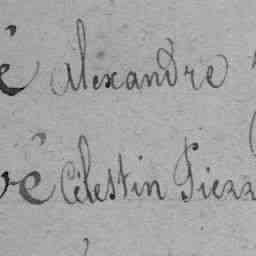 é Alexandre
vé Célestin Pierr